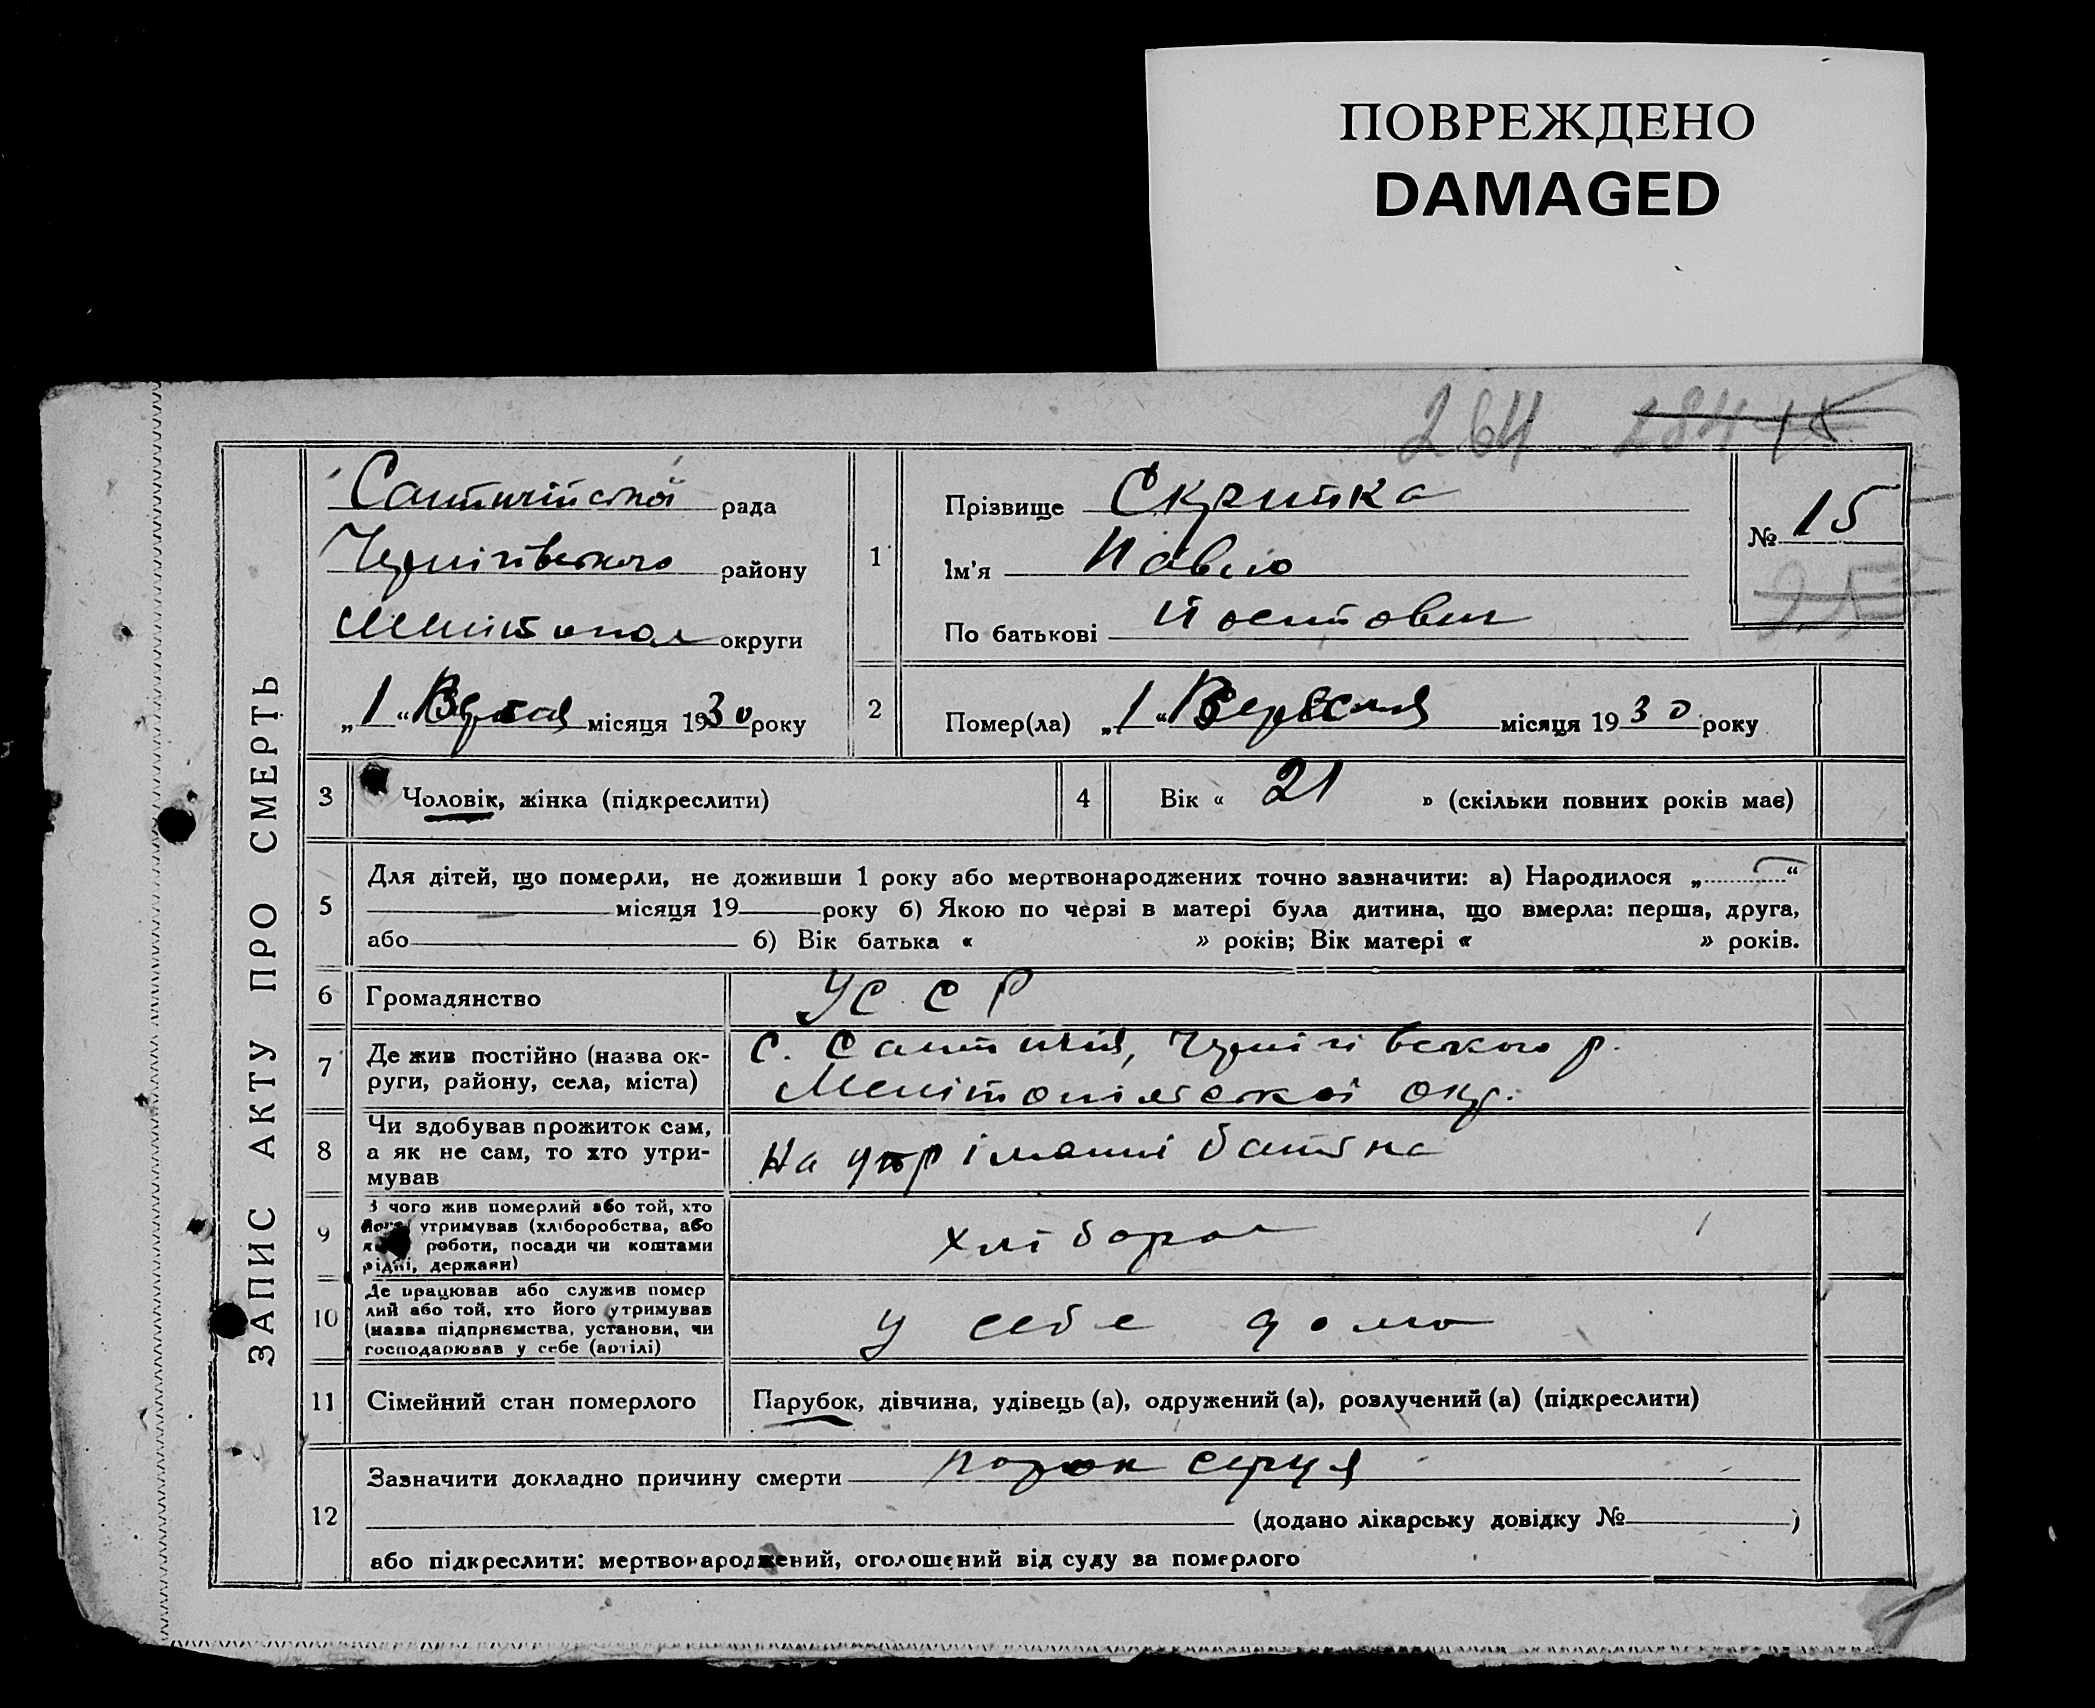 ПОВРЕЖДЕНО
DAMAGED
264 284 15
ЗАПИС АКТУ ПРО СМЕРТЬ
рада
Чернігівського району
округи
„1“ місяця 1930 року
1
Прізвище Скрипка
Ім'я Павло
По батькові
№ 15
25
2
Помер(ла) „1“ Вересня місяця 1930 року
3
Чоловік, жінка (підкреслити)
4
Вік « 21 » (скільки повних років має)
5
Для дітей, що померли, не доживши 1 року або мертвонароджених точно зазначити: а) Народилося „ “
місяця 19 року б) Якою по черзі в матері була дитина, що вмерла: перша, друга,
або б) Вік батька « » років; Вік матері « » років.
6
Громадянство
УССР
7
Де жив постійно (назва ок-
руги, району, села, міста)
с. Чернігівського р.
Мелітопільської окр.
8
Чи здобував прожиток сам,
а як не сам, то хто утри-
мував
На утріманні батька
9
З чого жив померлий або той, хто
його утримував (хліборобства, або
роботи, посади чи коштами
рідні, держави)
хлібороб
10
Де працював або служив помер
лий або той, хто його утримував
(назва підприємства, установи, чи
господарював у себе (артілі)
у себе дома
11
Сімейний стан померлого
Парубок, дівчина, удівець (а), одружений (а), розлучений (а) (підкреслити)
12
Зазначити докладно причину смерти порок серця
(додано лікарську довідку № )
або підкреслити: мертвонароджений, оголошений від суду за померлого